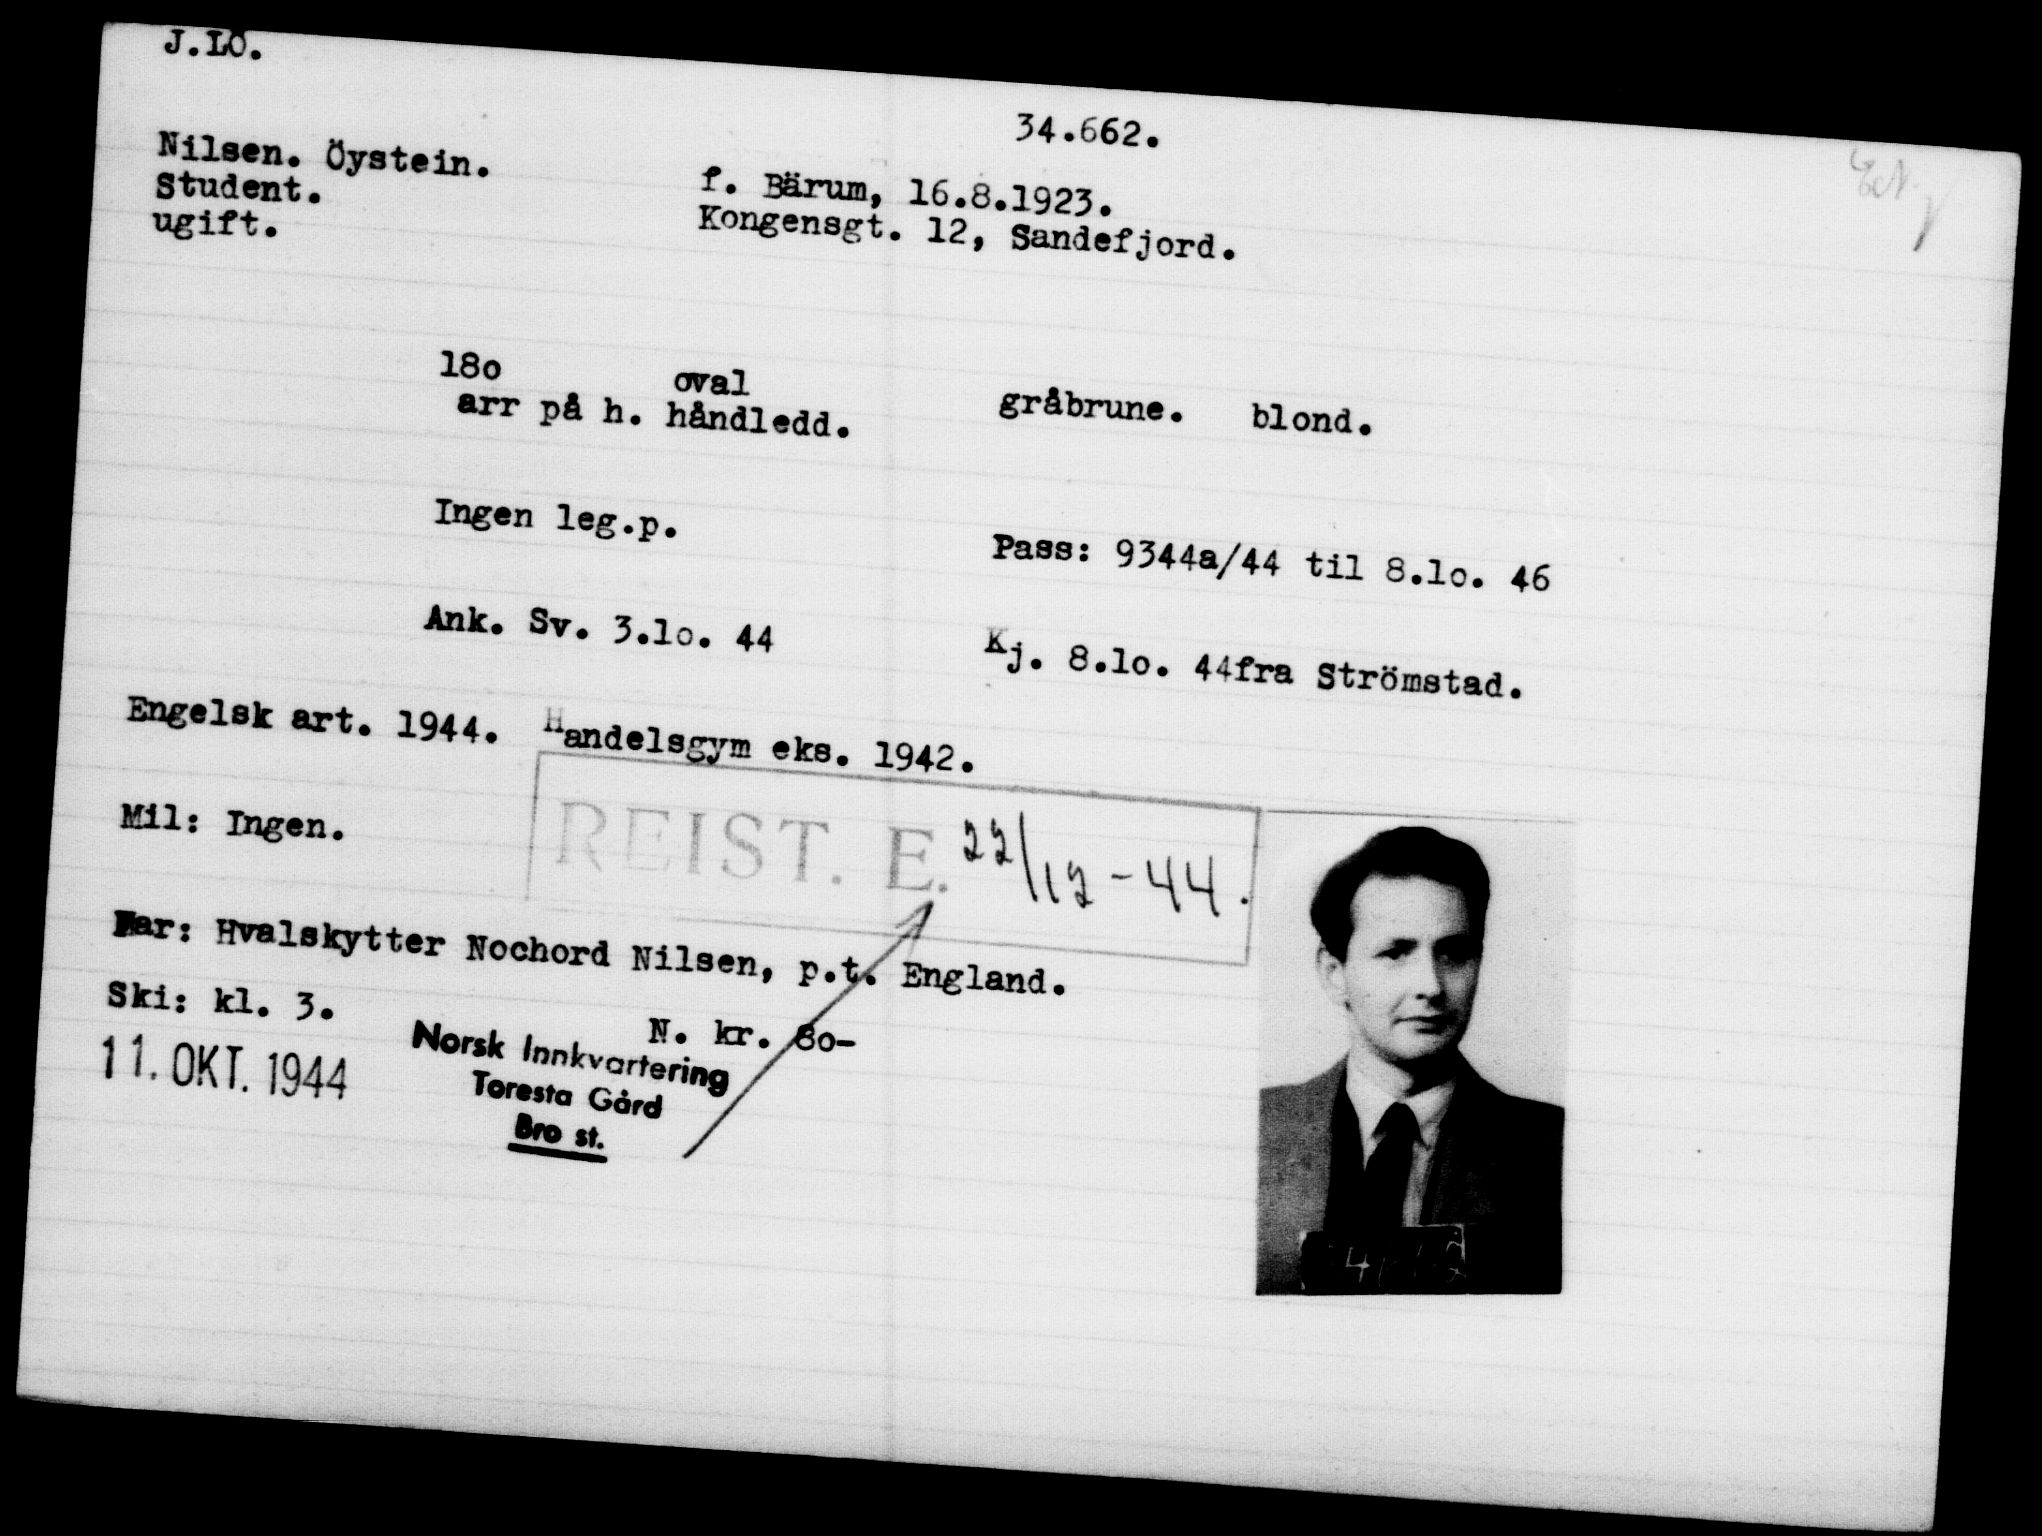 J.LO.
34.662.
Nilsen. Öystein.
f. Bärum, 16.8.1923.
Student.
Kongensgt. 12, Sandefjord.
ugift.
18o oval gråbrune. blond.
arr på h. håndledd.
Ingen leg.p.
Pass: 9344a/44 til 8.lo. 46
Ank. Sv. 3.lo. 44
Kj. 8.lo. 44fra Strömstad.
Engelsk art. 1944. Handelsgym eks. 1942.
REIST. E. 22/12-44.
Mil: Ingen.
Far: Hvalskytter Nochord Nilsen, p.t. England.
Ski: kl. 3.
N. kr. 8o-
11. OKT. 1944
Norsk Innkvartering
Toresta Gård
Bro st.